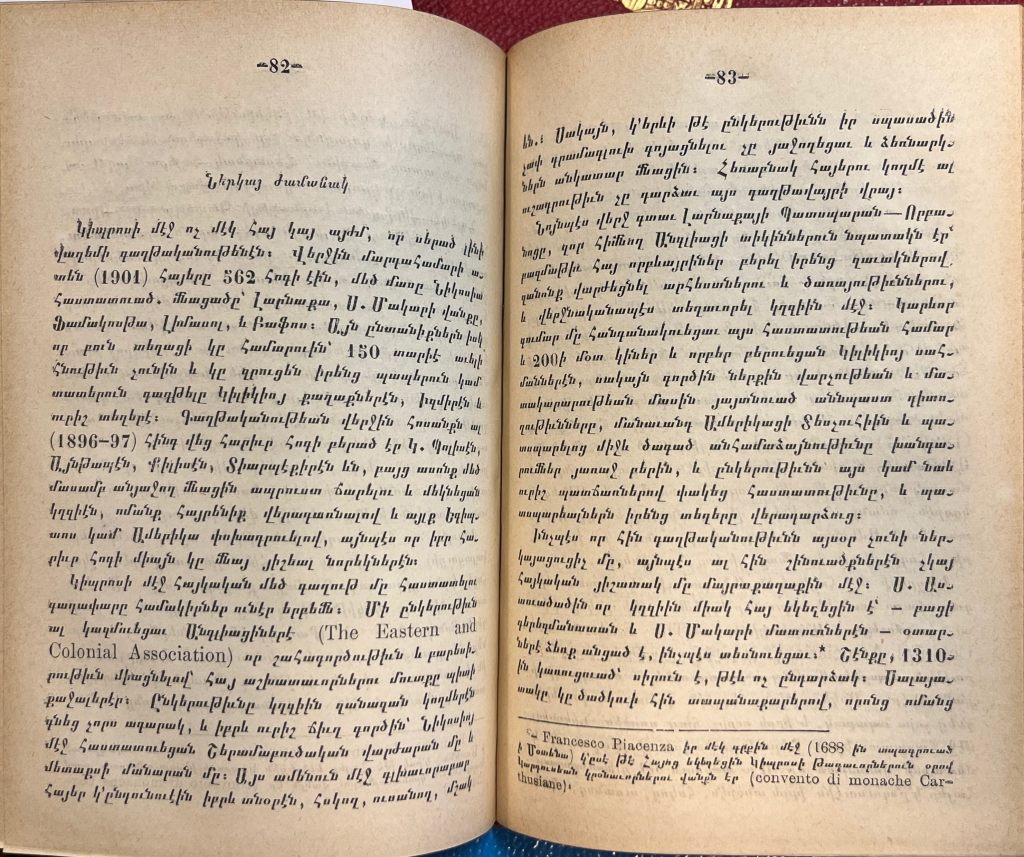 –82–
Ներկայ ժամանակ
Կիպրոսի մէջ ոչ մէկ հայ կայ այժմ, որ սերած լինի
վաղեմի գաղթականութենէն։ Վերջին մարդահամարի ա-
տեն (1901) հայերը 562 հոգի էին, մեծ մասը Նիկոսիա
հաստատուած. մնացածը՝ Լարնաքա, Ս. Մակարի վանքը,
Ֆամակուսթա, Լիմասոլ, և Բաֆոս։ Այն ընտանիքներն իսկ
որ բուն տեղացի կը համարուին՝ 150 տարիէ աւելի
հնութիւն չունին և կը զրուցեն իրենց պապերուն կամ
տատերուն գաղթելը Կիլիկիոյ քաղաքներէն, Իզմիրէն և
ուրիշ տեղերէ։ Գաղթականութեան վերջին հոսանքն ալ
(1896–97) հինգ վեց հարիւր հոգի բերած էր Կ. Պոլսէն,
Այնթապէն, Քիլիսէն, Տիարպէքիրէն ևն, բայց ասոնք մեծ
մասամբ անյաջող մնացին ապրուստ ճարելու և մեկնեցան
կղզիէն, ոմանք հայրենիք վերադառնալով և այլք Եգիպ-
տոս կամ Ամերիկա փոխադրուելով, այնպէս որ իբր հա-
րիւր հոգի միայն կը մնայ յիշեալ նորեկներէն։
Կիպրոսի մէջ հայկական մեծ գաղութ մը հաստատելու
գաղափարը համակիրներ ունէր երբեմն։ Մի ընկերութիւն
ալ կազմուեցաւ Անգլիացիներէ (The Eastern and
Colonial Association) որ շահագործութիւն և բարեսի-
րութիւն միացնելով հայ աշխատաւորներու մուտքը պիտի
քաջալերէր։ Ընկերութիւնը կղզիին զանազան կողմերէն
գնեց չորս ագարակ, և իբրև ուրիշ ճիւղ գործին՝ Նիկոսիոյ
մէջ հաստատուեցան Շերամաբուծական վարժարան մը և
մետաքսի մանարան մը։ Այս ամենուն մէջ գլխաւորաբար
Հայեր կ՚ընդունուէին իբրև տնօրէն, հսկող, ուսանող, մշակ
–83–
ևն.։ Սակայն, կ՚երևի թէ ընկերութիւնն իր սպասածին
չափ դրամագլուխ գոյացնելու չը յաջողեցաւ և ձեռնարկ-
ներն անկատար մնացին։ Հեռաբնակ Հայերու կողմէ ալ
ուշադրութիւն չը դարձաւ այս գաղթավայրի վրայ։
Նոյնպէս վերջ գտաւ Լարնաքայի Պատսպարան—Որբա-
նոցը, զոր հիմնող Անգլիացի տիկիններուն նպատակն էր՝
բազմաթիւ հայ որբևայրիներ բերել իրենց զաւակներով,
զանոնք վարժեցնել արհեստներու և ծառայութիւններու,
և վերջնականապէս տեղաւորել կղզիին մէջ։ Կարևոր
գումար մը հանգանակուեցաւ այս հաստատութեան համար
և 200ի մօտ կիներ և որբեր բերուեցան Կիլիկիոյ սահ-
մաններէն, սակայն գործին ներքին վարչութեան և մա-
տակարարութեան մասին յայտնուած աննպաստ դիտո-
ղութիւնները, մանաւանդ Ամերիկացի Տեսչուհիին և պա-
տսպարելոց միջև ծագած անհամաձայնութիւնը խանգա-
րումներ յառաջ բերին, և ընկերութիւնն այս կամ նաև
ուրիշ պատճառներով փակեց հաստատութիւնը, և պա-
տսպարեալներն իրենց տեղերը վերադարձուց։
Ինչպէս որ հին գաղթականութիւնն այսօր չունի ներ-
կայացուցիչ մը, այնպէս ալ հին շինուածքներէն չկայ
հայկական յիշատակ մը մայրաքաղաքին մէջ։ Ս. Աս-
տուածածին որ կղզիին միակ հայ եկեղեցին է՝ – բացի
գերեզմանատան և Ս. Մակարի մատուռներէն – օտար-
ներէ ձեռք անցած է, ինչպէս տեսնուեցաւ։* Շէնքը, 1310-
ին կառուցուած՝ սիրուն է, թէև ոչ ընդարձակ։ Սալայա-
տակը կը ծածկուի հին տապանաքարերով, որոնց ոմանց
*– Francesco Piacenza իր մէկ գրքին մէջ (1688 ին տպագրուած
ի Մօտենա) կ՚ըսէ թէ Հայոց եկեղեցին Կիպրոսի Թագաւորներուն օրով
կարդուսեան կրօնաւորներու վանքն էր (convento di monache Car-
thusiane)։